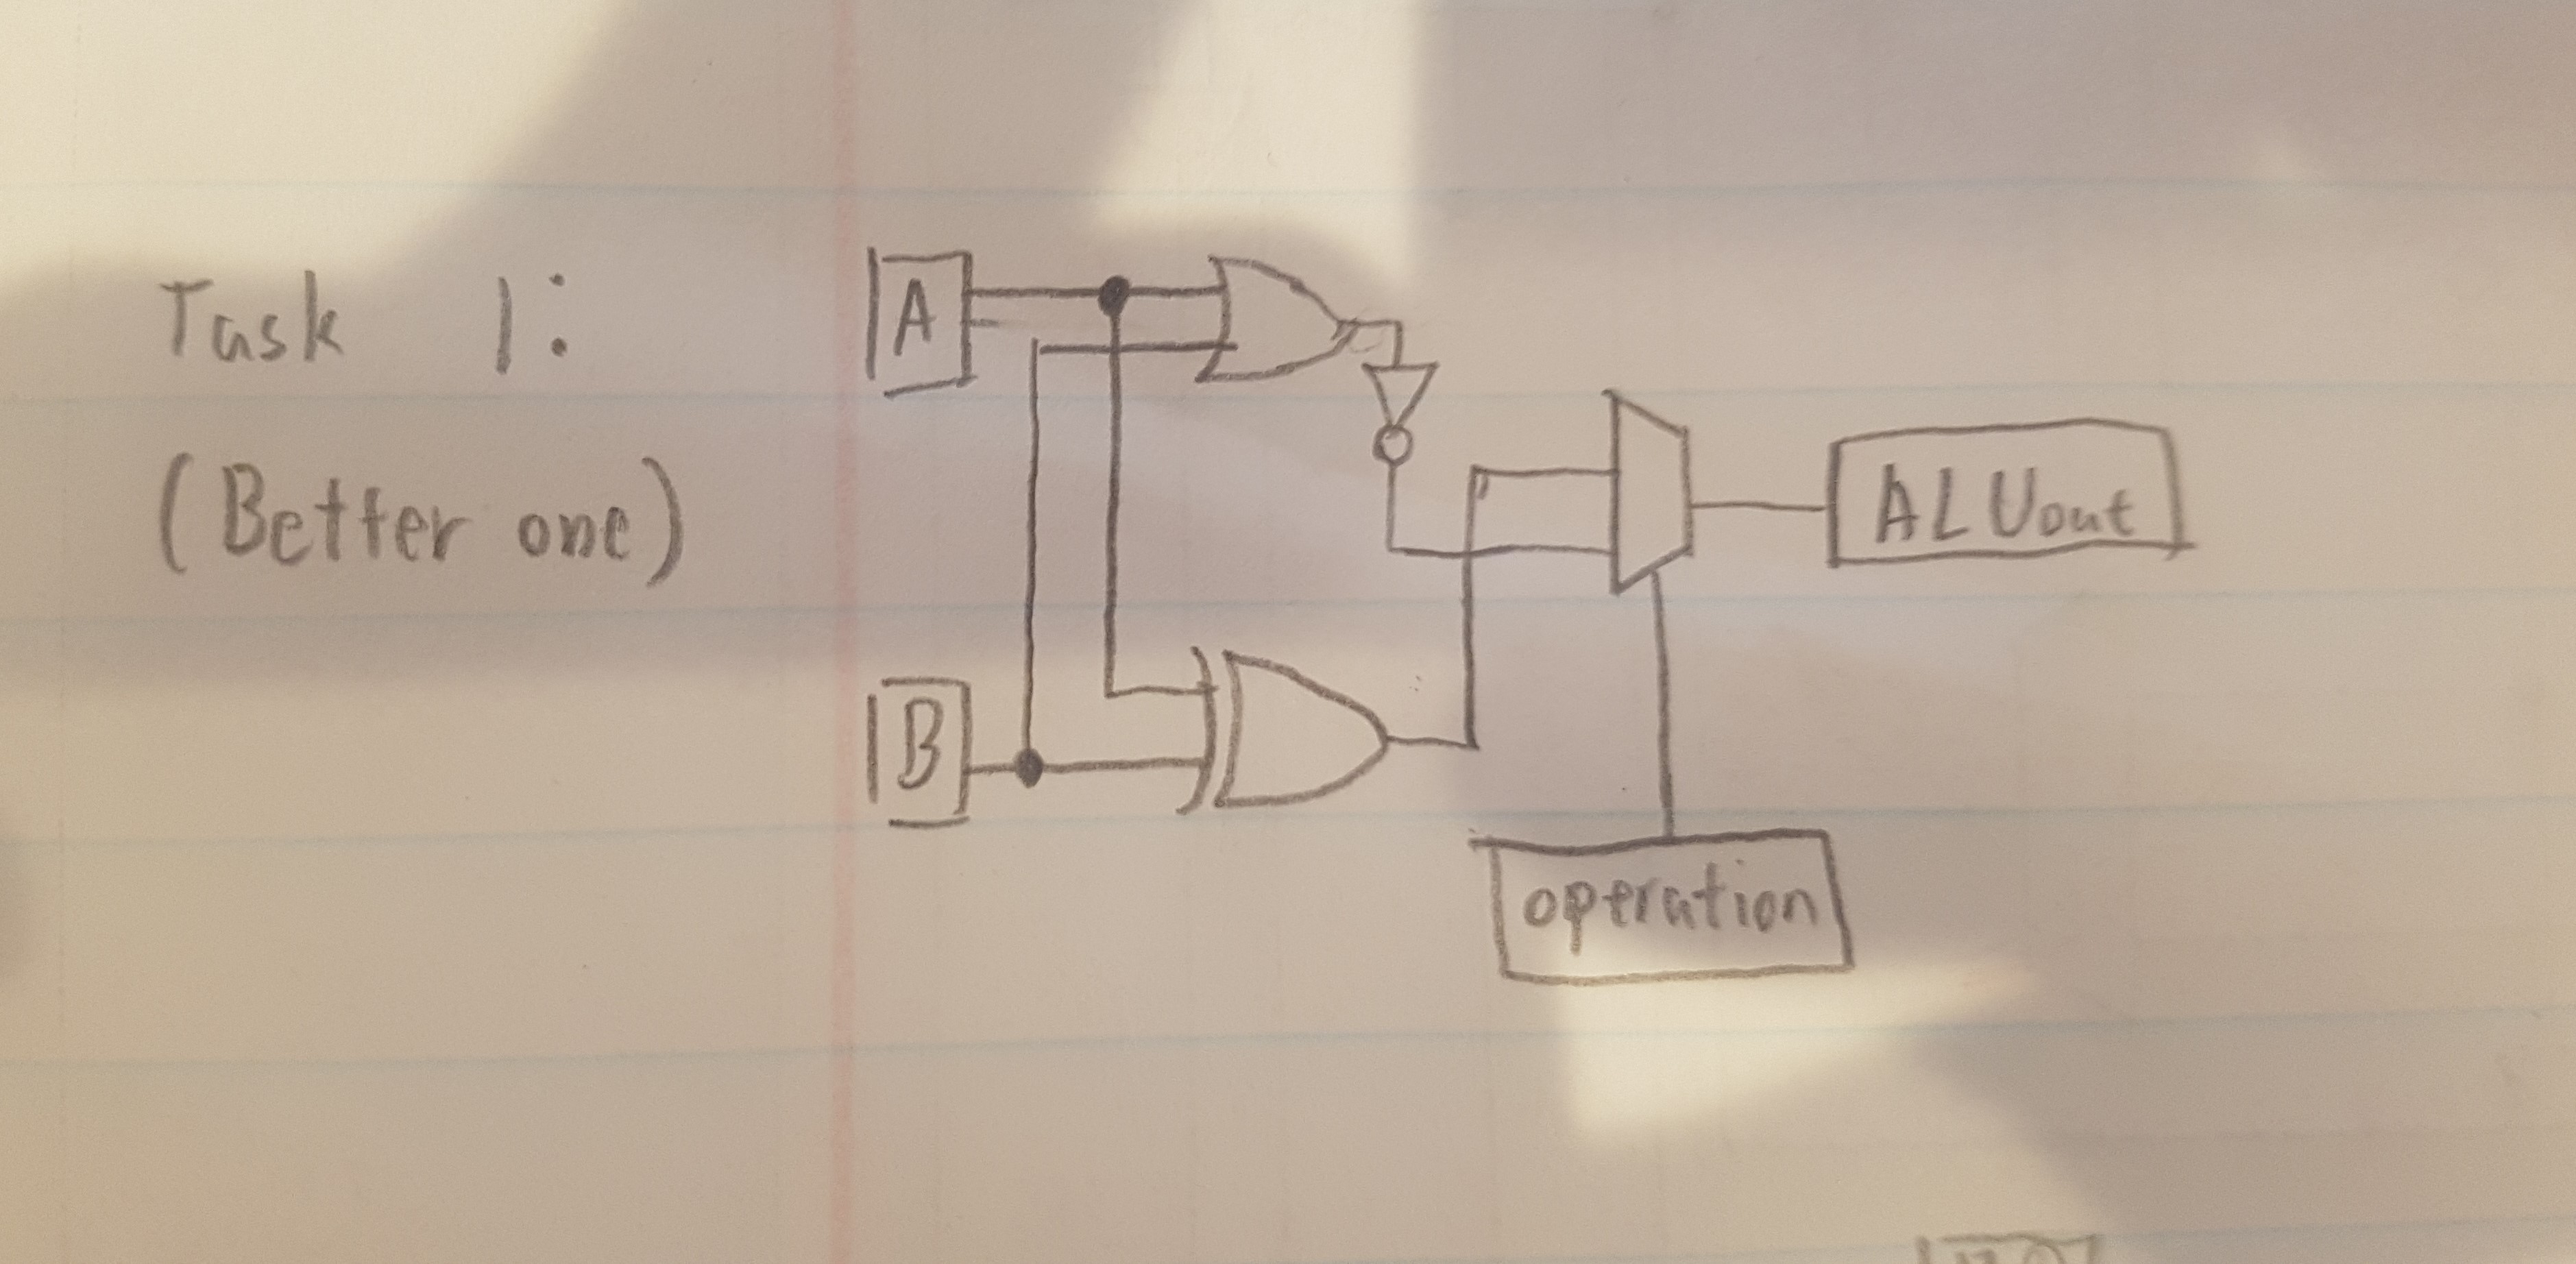 Task 1:
(Better one)
A
B
ALUout
operation